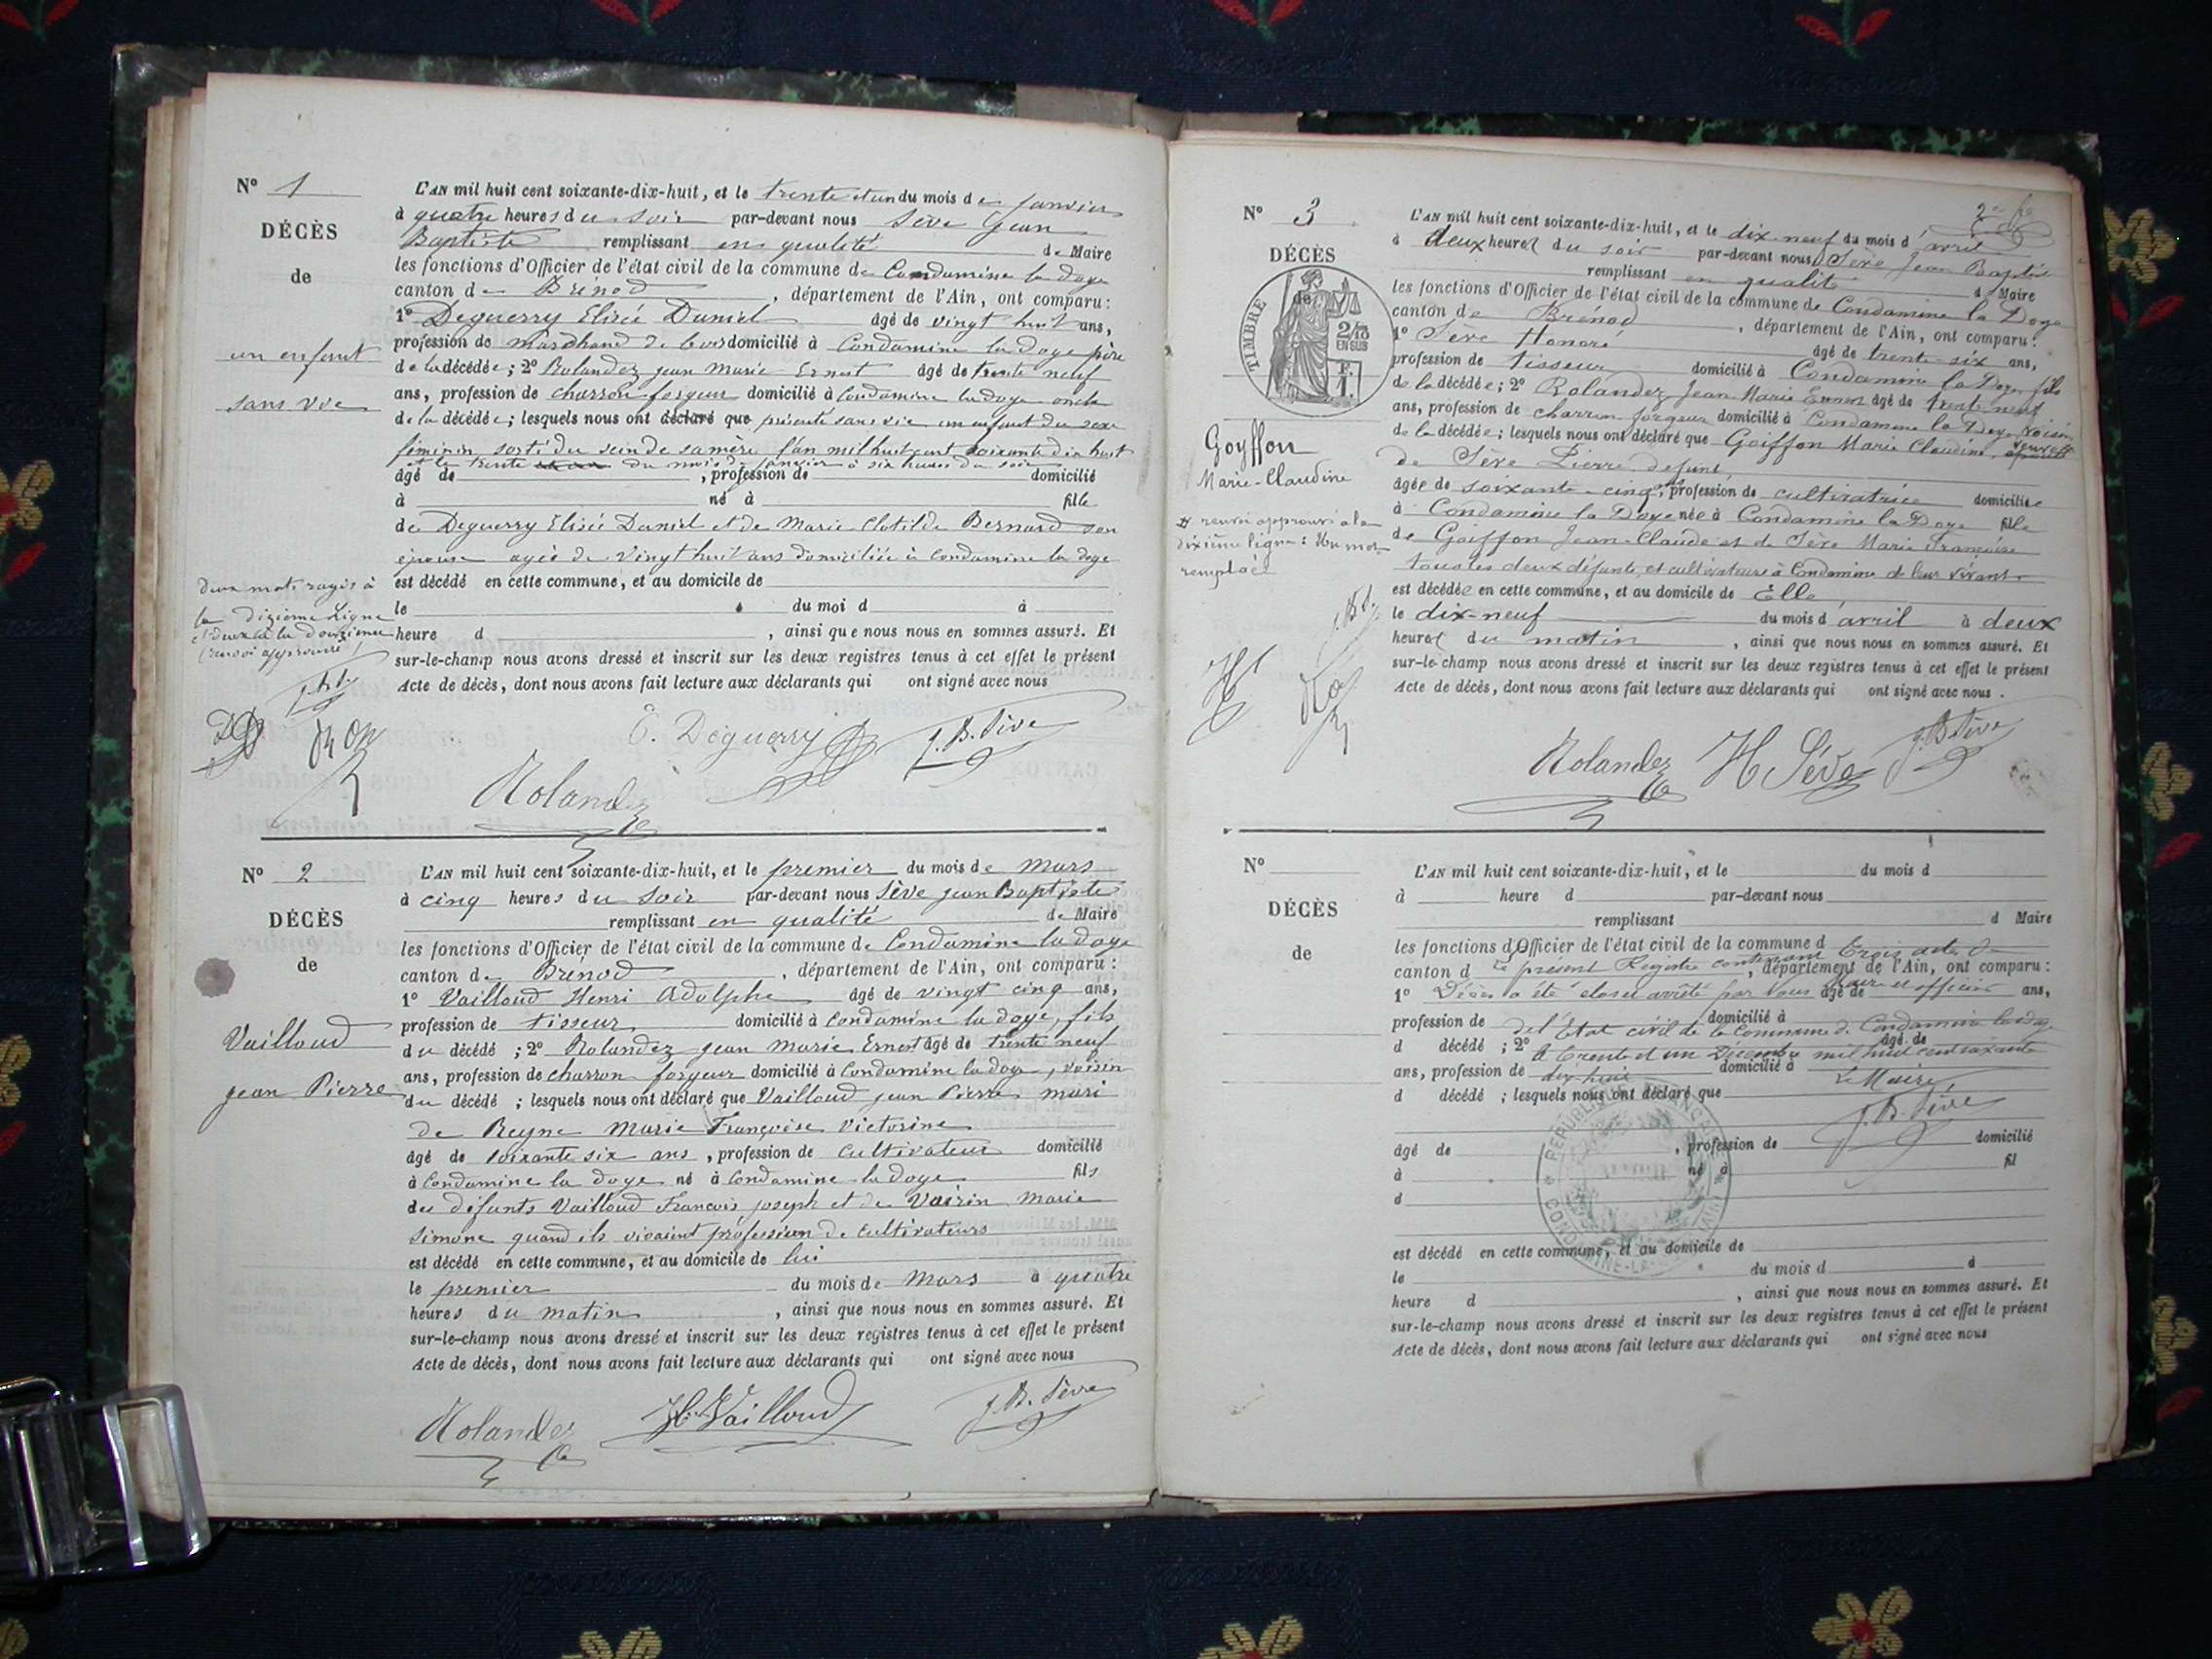 N° 1
DÉCÈS
de
un enfant
sans vie
L'AN mil huit cent soixante-dix-huit, et le trente et un du mois de janvier
à quatre heures du soir par-devant nous Sève Jean
Baptiste remplissant en qualité de Maire
les fonctions d'Officier de l'état civil de la commune de Condamine la doye
canton de Brénod, département de l'Ain, ont comparu:
1° Deguerry Elisée Daniel âgé de vingt huit ans,
profession de marchand de bois domicilié à Condamine la doye père
de la décédée; 2° Rolandez jean marie Ernest âgé de trente neuf
ans, profession de charron forgeur domicilié à Condamine la doye oncle
de la décédée; lesquels nous ont déclaré que présenté sans vie un enfant du sexe
féminin sorti du sein de sa mère l'an mil huit cent soixante dix huit
et le trente du mois de janvier à six heures du soir
âgé de , profession de domicilié
à né à fille
de Deguerry Elisée Daniel et de Marie Clotilde Bernard son
épouse agée de vingt huit ans domiciliée à Condamine la doye
est décédé en cette commune, et au domicile de
le du moi d à
heure d , ainsi que nous nous en sommes assuré. Et
sur-le-champ nous avons dressé et inscrit sur les deux registres tenus à cet effet le présent
Acte de décès, dont nous avons fait lecture aux déclarants qui ont signé avec nous
deux mots rayés à
la dizieme Ligne
et deux à la douzieme
(renvoi approuvé)
E. Deguerry J. B. Sève
Rolandez
N° 2
DÉCÈS
de
Vailloud
jean Pierre
L'AN mil huit cent soixante-dix-huit, et le premier du mois de mars
à cinq heures du soir par-devant nous Sève jean Baptiste
remplissant en qualité de Maire
les fonctions d'Officier de l'état civil de la commune de Condamine la doye
canton de Brénod, département de l'Ain, ont comparu:
1° Vailloud Henri Adolphe âgé de vingt cinq ans,
profession de tisseur domicilié à Condamine la doye, fils
du décédé; 2° Rolandez jean marie Ernest âgé de trente neuf
ans, profession de charron forgeur domicilié à Condamine la doye, voisin
du décédé; lesquels nous ont déclaré que Vailloud jean Pierre mari
de Reyne Marie Françoise Victorine
âgé de soixante six ans, profession de cultivateur domicilié
à Condamine la doye né à Condamine la doye fils
des défunts Vailloud François joseph et de Vairin Marie
Simone quand ils vivaient profession de cultivateurs
est décédé en cette commune, et au domicile de lui
le premier du mois de Mars à quatre
heures du matin, ainsi que nous nous en sommes assuré. Et
sur-le-champ nous avons dressé et inscrit sur les deux registres tenus à cet effet le présent
Acte de décès, dont nous avons fait lecture aux déclarants qui ont signé avec nous
Rolandez H. Vailloud J. B. Sève
N° 3
DÉCÈS
de
TIMBRE
2/10
EN SUS
F.
1.
Goyffon
Marie-Claudine
L'AN mil huit cent soixante-dix-huit, et le dix-neuf du mois d'avril
à deux heures du soir par-devant nous Sève Jean Baptiste
remplissant en qualité d Maire
les fonctions d'Officier de l'état civil de la commune de Condamine la Doye
canton de Brénod, département de l'Ain, ont comparu:
1° Sève Honoré âgé de trente-six ans,
profession de tisseur domicilié à Condamine la Doye, fils
de la décédée; 2° Rolandez Jean Marie Ernest âgé de trente neuf
ans, profession de charron forgeur domicilié à Condamine la Doye voisin
de la décédée; lesquels nous ont déclaré que Goiffon Marie Claudine, veuve
de Sève Pierre défunt
âgée de soixante-cinq ans, profession de cultivatrice domiciliée
à Condamine la Doye née à Condamine la Doye fille
de Goiffon Jean-Claude et de Sève Marie Françoise
tous les deux défunts, et cultivateurs à Condamine de leur vivant.
est décédée en cette commune, et au domicile de Elle
le dix-neuf du mois d'avril à deux
heures du matin, ainsi que nous nous en sommes assuré. Et
sur-le-champ nous avons dressé et inscrit sur les deux registres tenus à cet effet le présent
Acte de décès, dont nous avons fait lecture aux déclarants qui ont signé avec nous.
renvoi approuvé à la
dixième ligne: Un mot
remplacé
Rolandez H Sève J. B. Sève
N°
DÉCÈS
de
L'AN mil huit cent soixante-dix-huit, et le du mois d
à heure d par-devant nous
remplissant d Maire
les fonctions d'Officier de l'état civil de la commune d
canton d , département de l'Ain, ont comparu:
1° âgé de ans,
profession de domicilié à
d décédé; 2° âgé de
ans, profession de domicilié à
d décédé; lesquels nous ont déclaré que
Le présent Registre contenant trois actes de
Décès a été clos et arrêté par Nous Maire et officier
de l'Etat civil de la Commune de Condamine la doye
le trente et un Décembre mil huit cent soixante
dix huit
Le Maire,
J. B. Sève
âgé de , profession de domicilié
à né à fil
d
est décédé en cette commune, et au domicile de
le du mois d à
heure d , ainsi que nous nous en sommes assuré. Et
sur-le-champ nous avons dressé et inscrit sur les deux registres tenus à cet effet le présent
Acte de décès, dont nous avons fait lecture aux déclarants qui ont signé avec nous